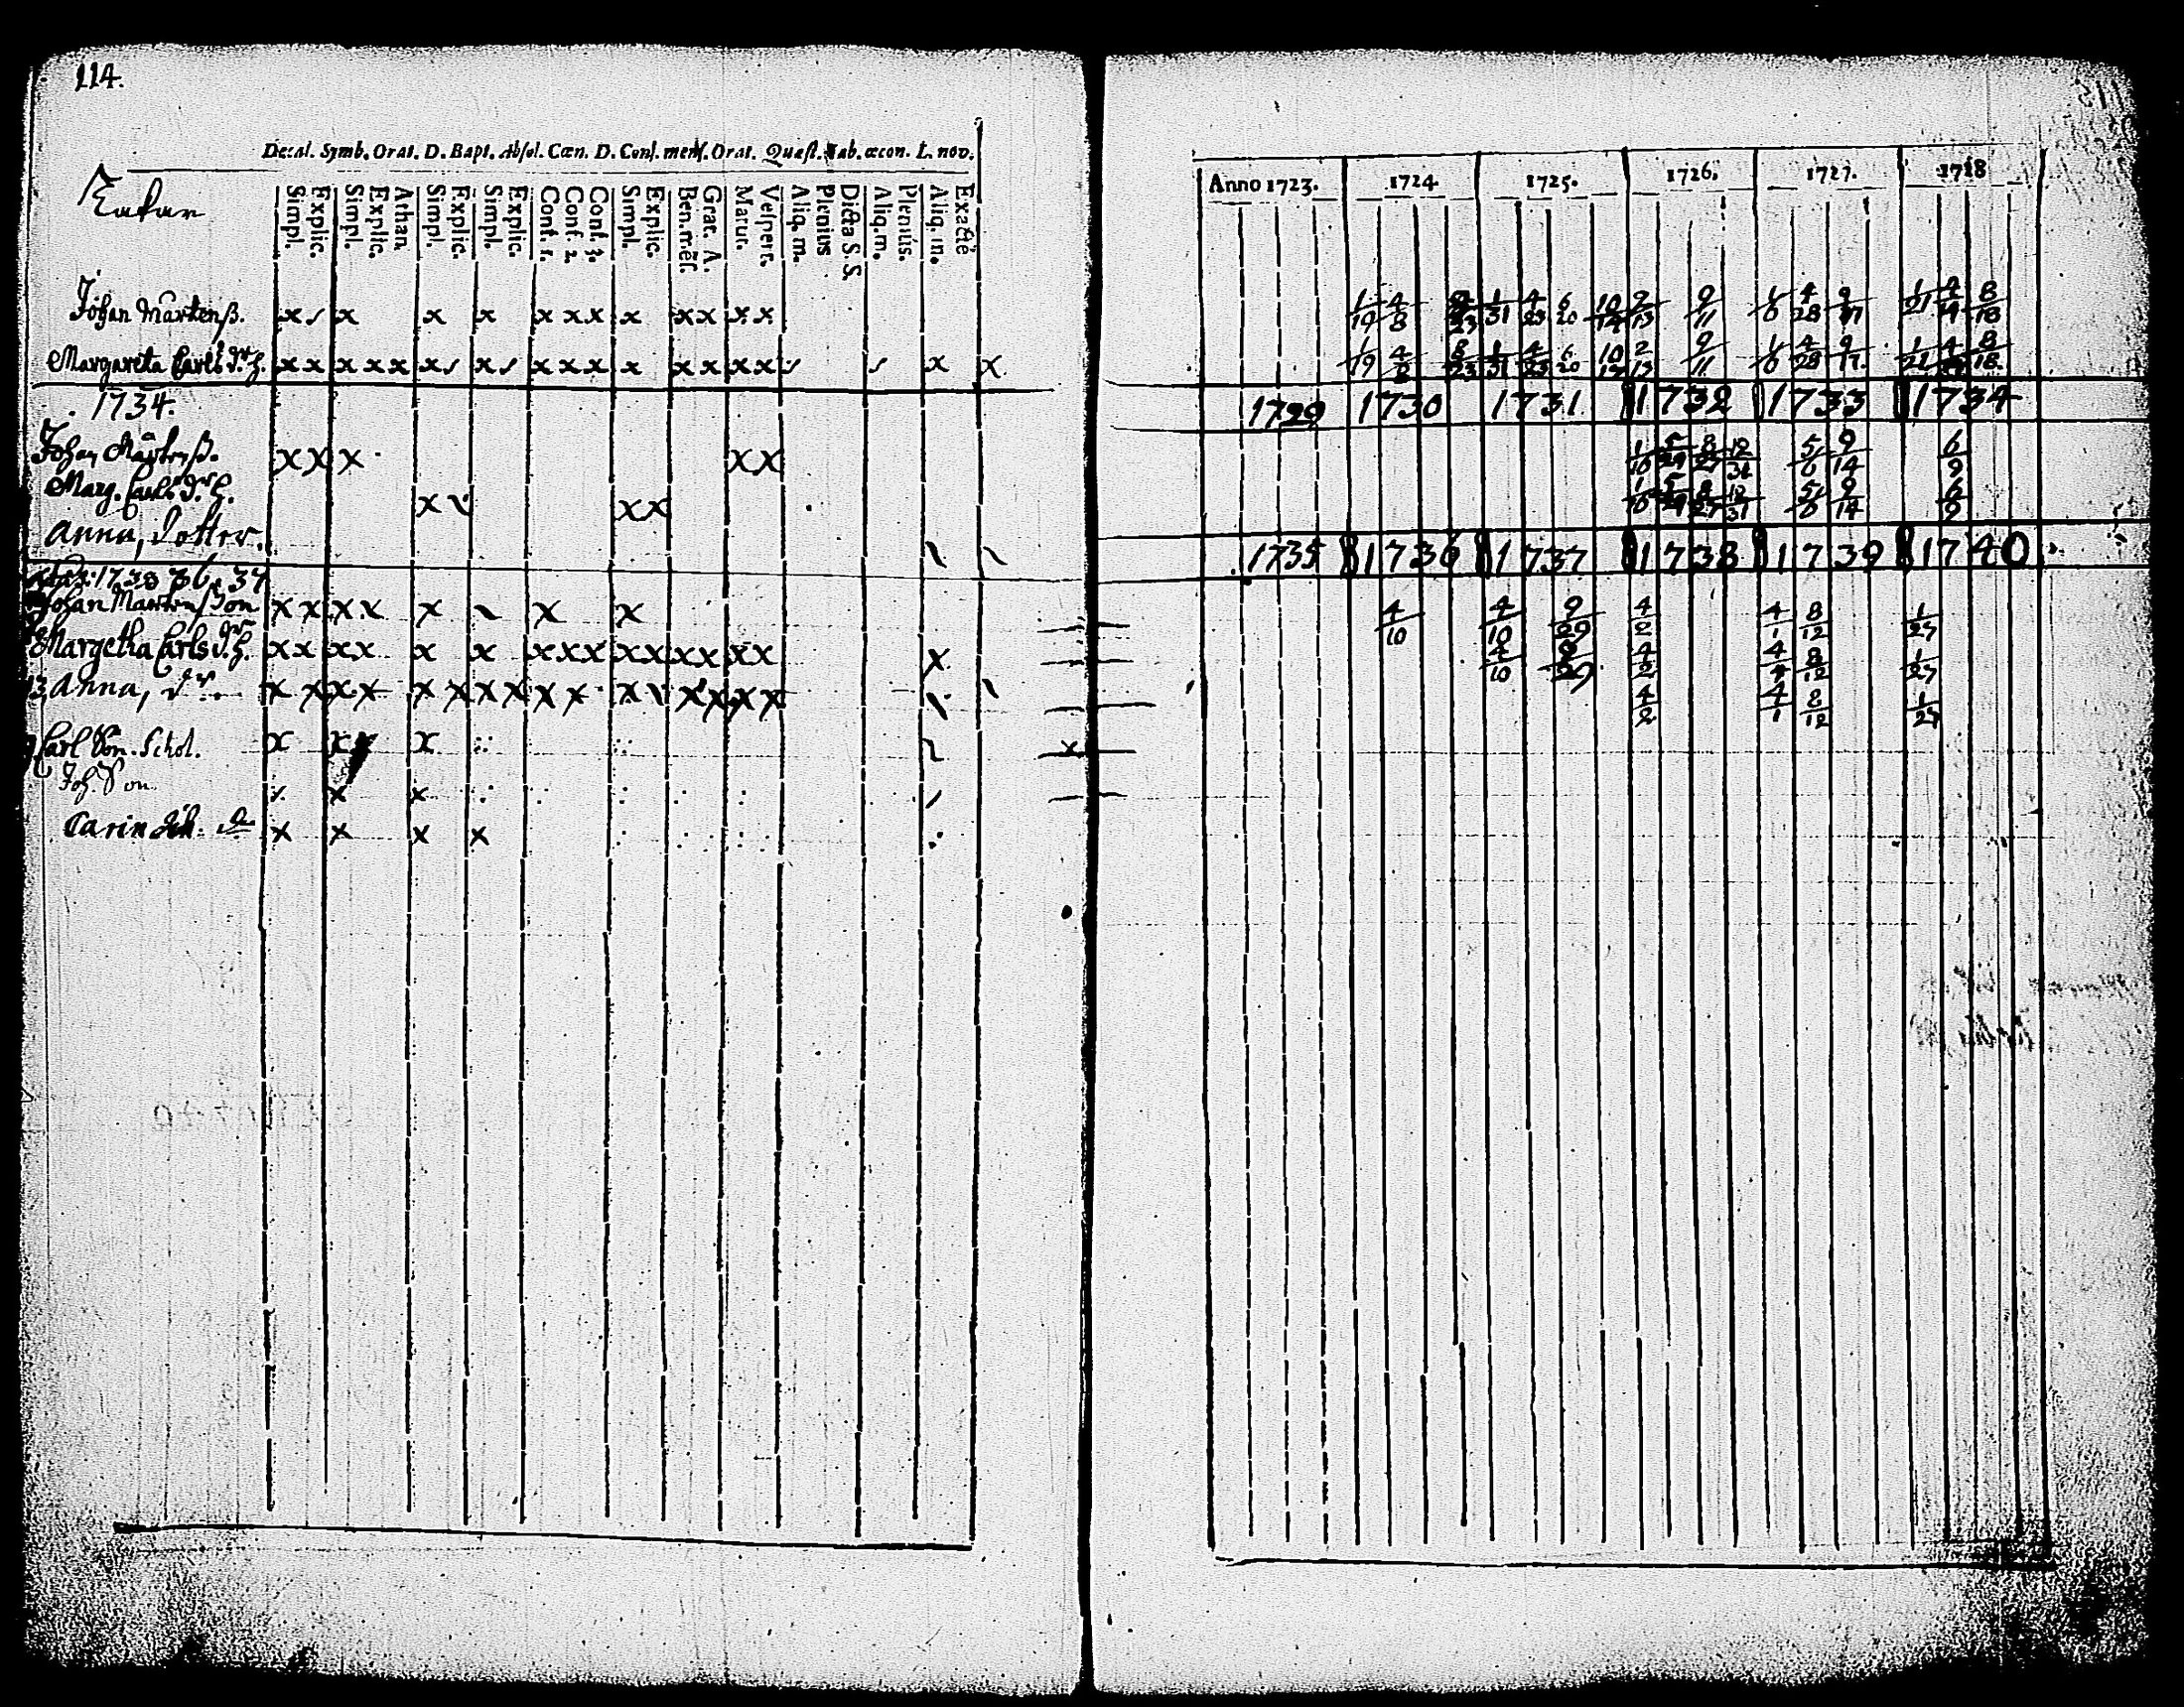 114.
Decal. Symb. Orat. D. Bapt. Absol. Cœn. D. Conf. mens. Orat. Quæst. Tab. œcon. L. nov.
Simpl. Explic. Simpl. Explic. Athan. Simpl. Explic. Simpl. Explic. Conf. 1. Conf. 2. Conf. 3. Simpl. Explic. Ben. mēs. Grat. A. Matut. Vespert. Aliq. m. Plenius Dicta S. S. Aliq. m. Plenius. Aliq. m. Exactè
Johan Mårtenß. x x x x x x x x x x x x
Margareta Carls d.r h. x x x x x x x x x x x x x x x x x
1734.
Johan Mårtenß. x x x x x
Marg. Carls d.r h. x x x
Anna, dotter.
36. 37
Johan Mårtenßon x x x x x x x
Margetha Carls d.r h. x x x x x x x x x x x x x x x x
13 Anna, d.r x x x x x x x x x x x x x x x
Carl Son. Schol. x x x x
Joh. Son x x
Carin x x x x
Anno 1723. 1724 1725. 1726. 1727. 1728
1/19 4/8 8/23 1/31 4/23 6/20 10/17 2/13 9/11 1/6 4/28 9/17 1/21 4/19 8/18
1/19 4/8 8/23 1/31 4/23 6/20 10/17 2/13 9/11 1/6 4/28 9/17 1/21 4/19 8/18
1729 1730 1731 1732 1733 1734
1/16 5/29 8/27 12/31 5/6 9/14 6/9
1/16 5/29 8/27 12/31 5/6 9/14 6/9
1735 1736 1737 1738 1739 1740
4/10 4/10 9/29 4/2 4/1 8/12 1/27
4/10 9/29 4/2 4/1 8/12 1/27
4/2 4/1 8/12 1/27